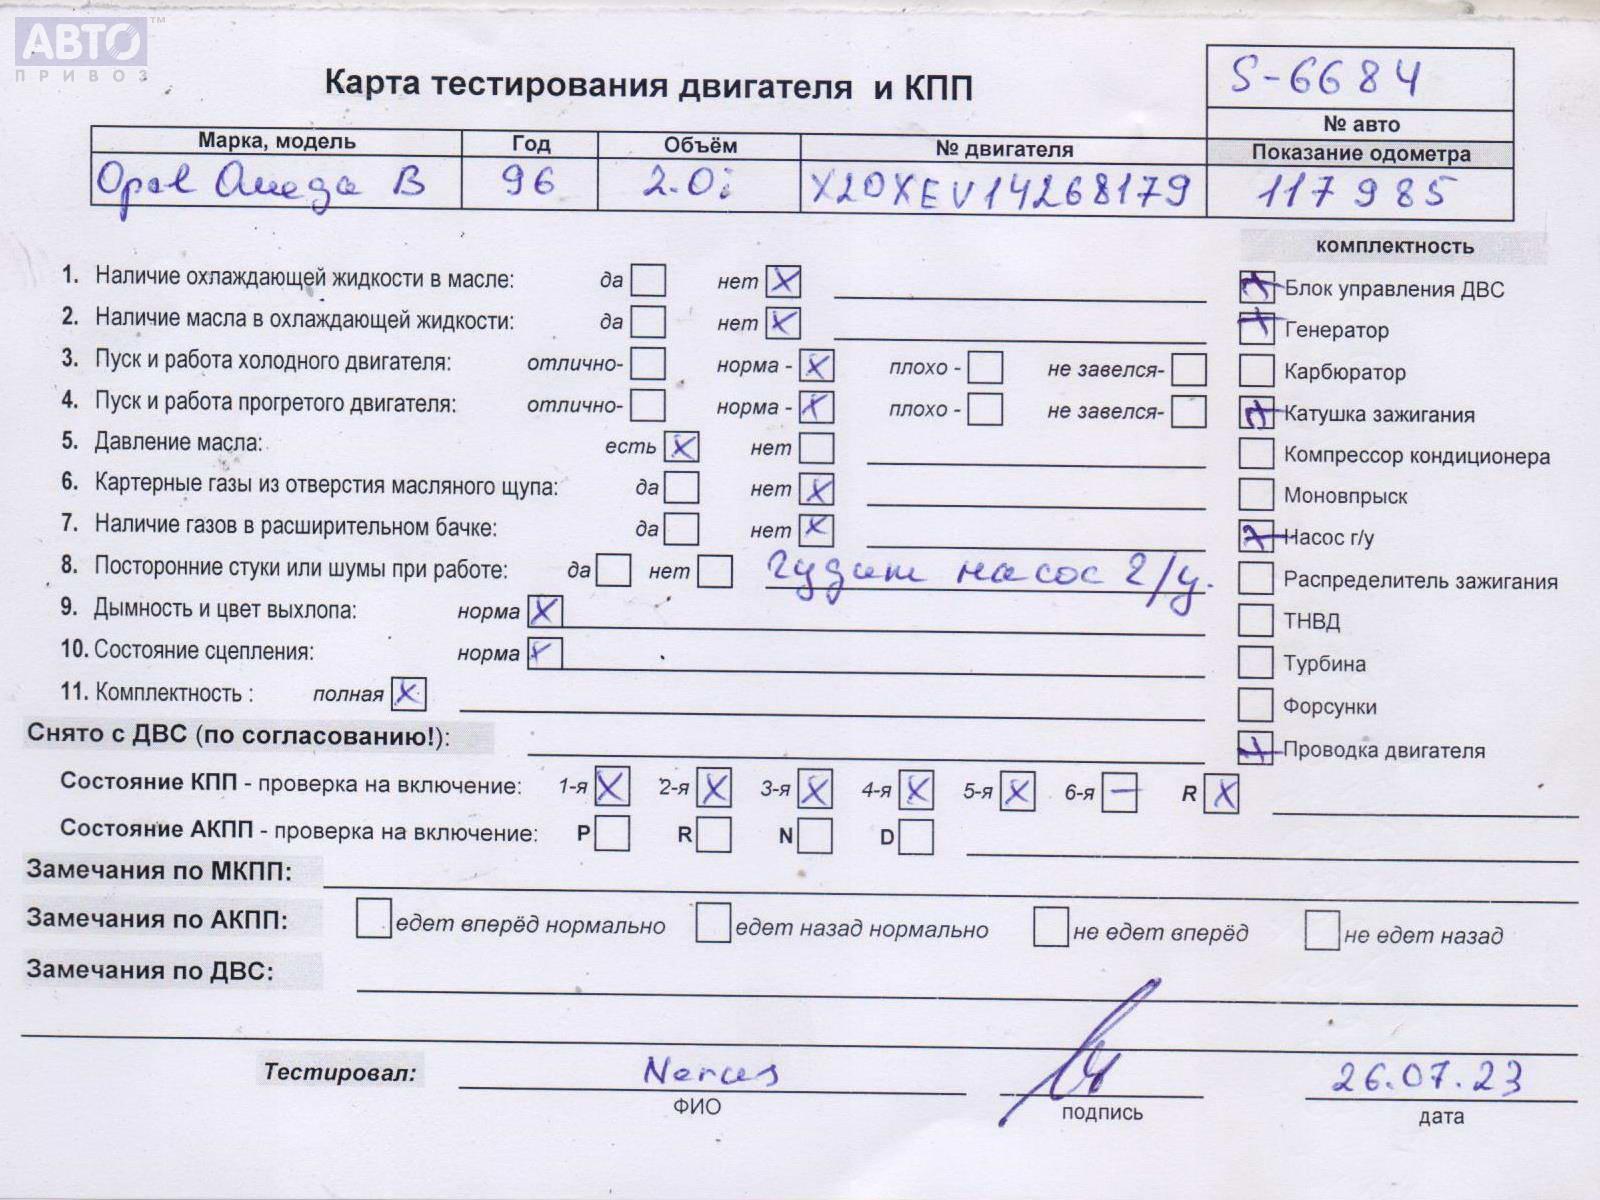 АВТО™
ПРИВОЗ
Карта тестирования двигателя и КПП
S-6684
№ авто
Марка, модель Год Объём № двигателя Показание одометра
Opel Омега B 96 2.0i X20XEV14268179 117985
комплектность
1. Наличие охлаждающей жидкости в масле: да нет X
Блок управления ДВС
2. Наличие масла в охлаждающей жидкости: да нет X
Генератор
3. Пуск и работа холодного двигателя: отлично- норма - X плохо - не завелся-
Карбюратор
4. Пуск и работа прогретого двигателя: отлично- норма - X плохо - не завелся-
Катушка зажигания
5. Давление масла: есть X нет
Компрессор кондиционера
6. Картерные газы из отверстия масляного щупа: да нет X
Моновпрыск
7. Наличие газов в расширительном бачке: да нет X
Насос г/у
8. Посторонние стуки или шумы при работе: да нет гудит насос г/у.
Распределитель зажигания
9. Дымность и цвет выхлопа: норма X
ТНВД
10. Состояние сцепления: норма X
Турбина
11. Комплектность : полная X
Форсунки
Снято с ДВС (по согласованию!):
Проводка двигателя
Состояние КПП - проверка на включение: 1-я X 2-я X 3-я X 4-я X 5-я X 6-я – R X
Состояние АКПП - проверка на включение: P R N D
Замечания по МКПП:
Замечания по АКПП: едет вперёд нормально едет назад нормально не едет вперёд не едет назад
Замечания по ДВС:
Тестировал: 26.07.23
ФИО подпись дата